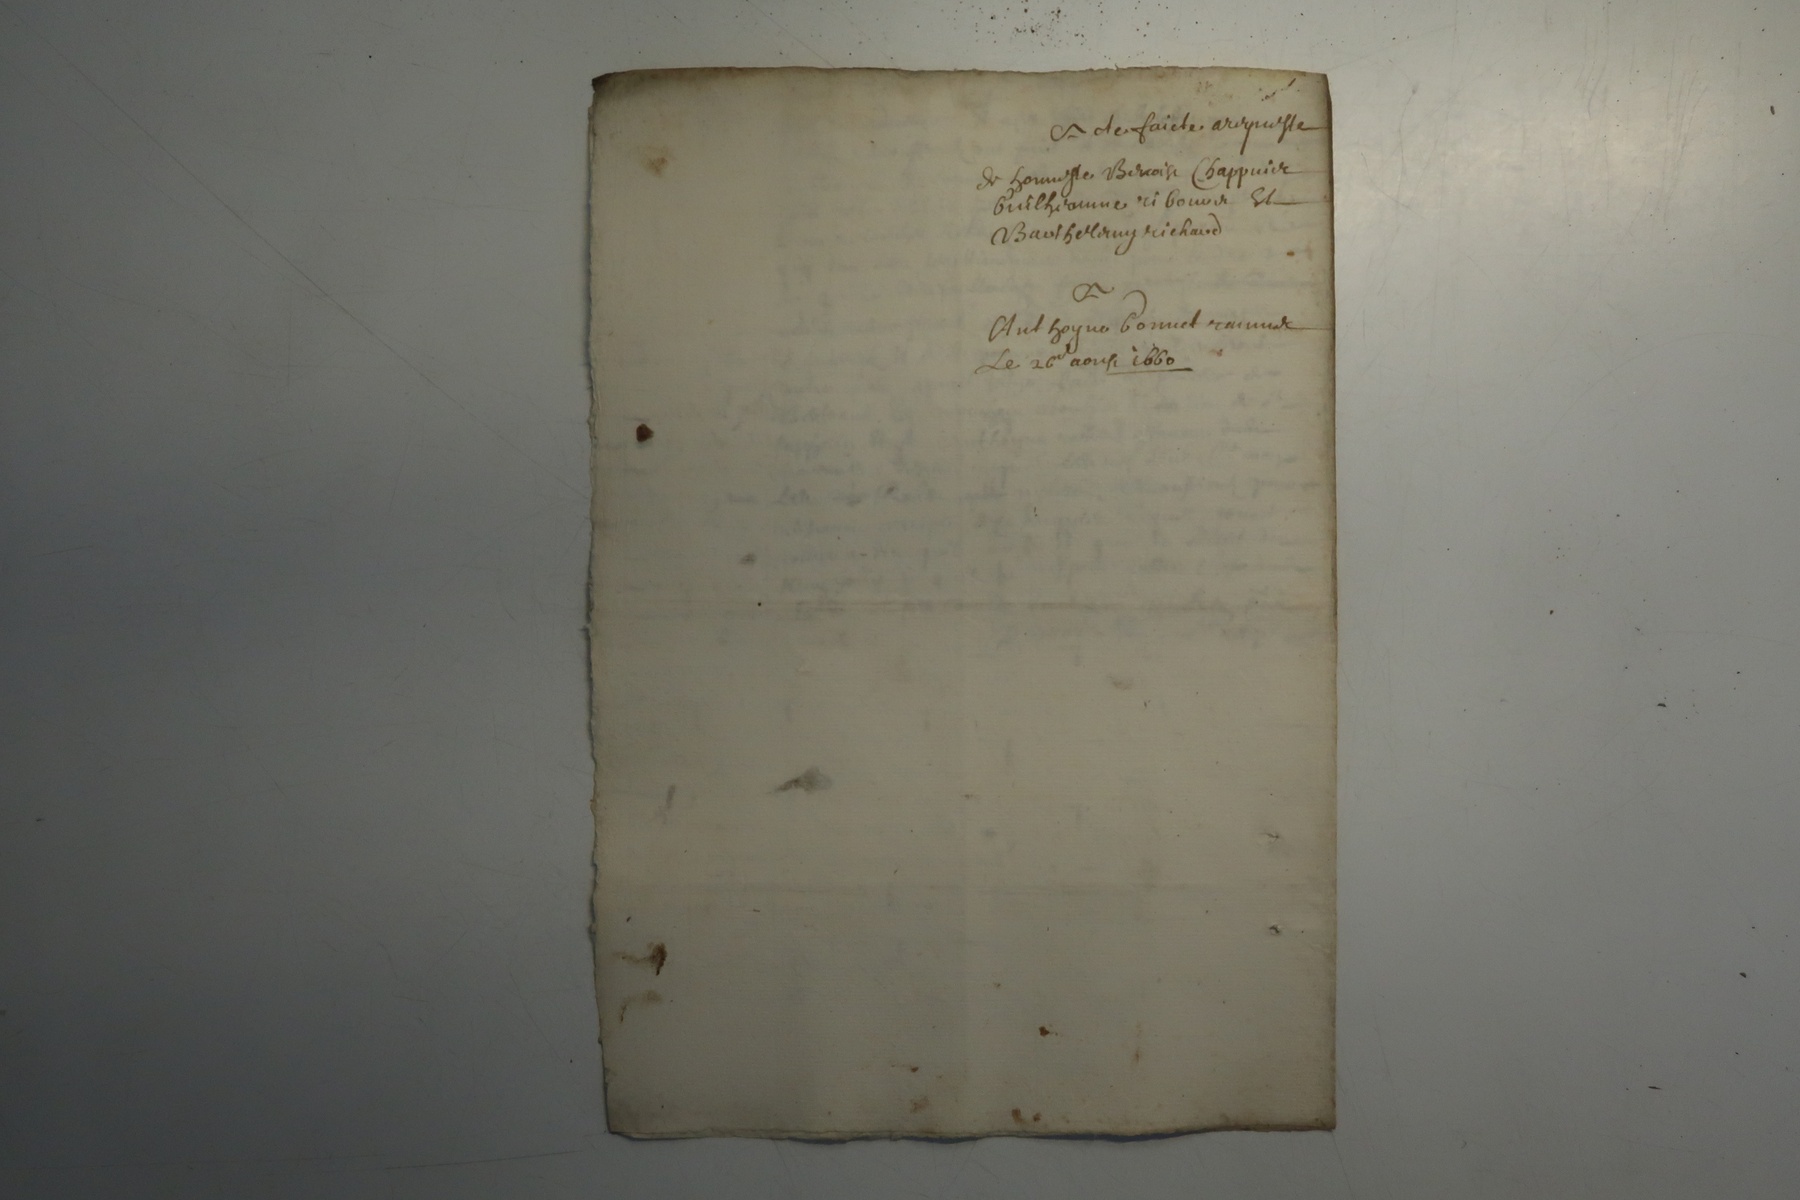 de faicte a requeste
de honneste Benoist Chappuis
Guilhiaume ribouer Et
Barthelemy richard
A
Anthoyne bonnet
Le 26e aoust 1660